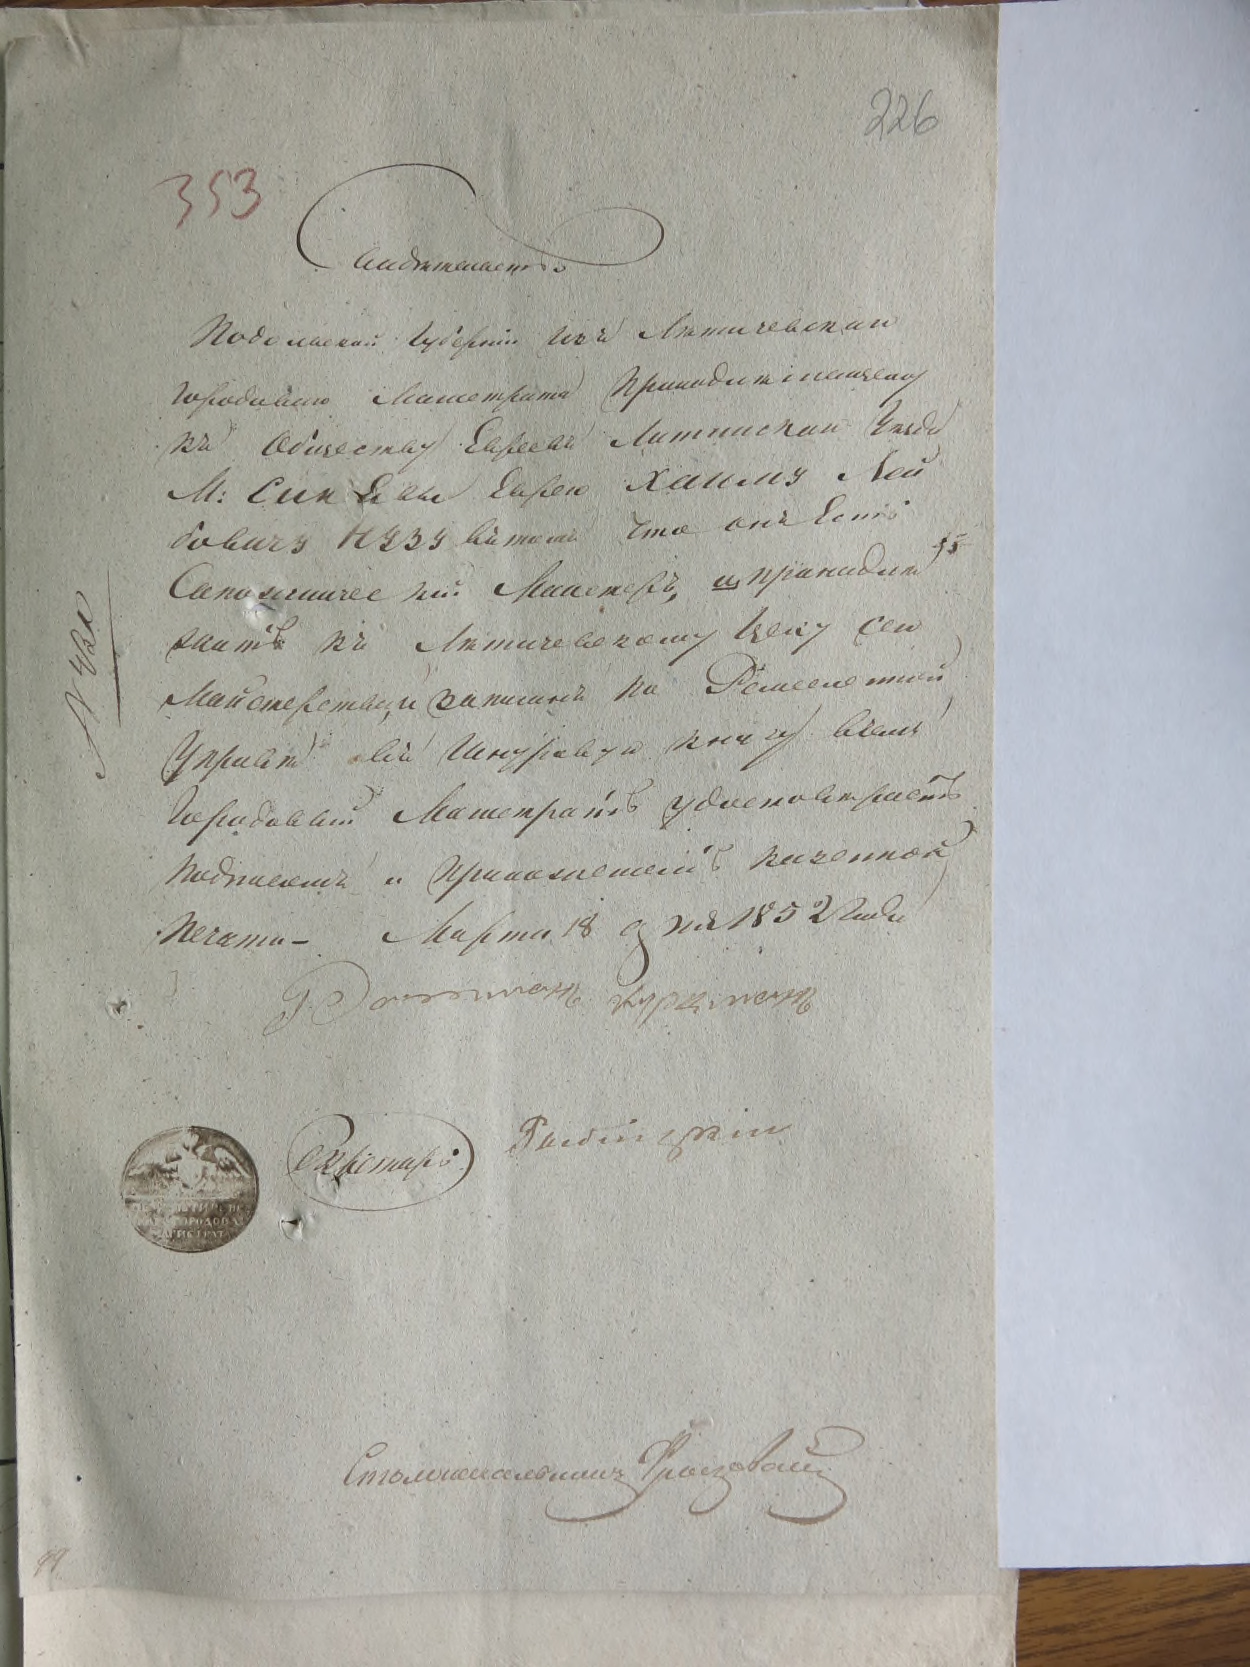 226
353
Свидетельство
Подольской Губернии изъ Летичевскаго
городоваго Магистрата Принадлежащему
къ Обществу Евреевъ Литинскаго Уезда
М: Синявы Еврею Хаиму Лей
бовичу Нузу въ томъ что онъ Есть
Сапожнический Майстеръ, и принадле
жить къ Летичевскому Цеху сего
Майстерства, и записанъ по Ремесленной
Управе въ Шнуровую книгу въ чемъ
Городовый Магистратъ удостоверяетъ
подписомъ и приложениемъ казенной
печати – Марта 18 дня 1852 Года
Секретарь
ГОРОДОВА
Столоначальникъ